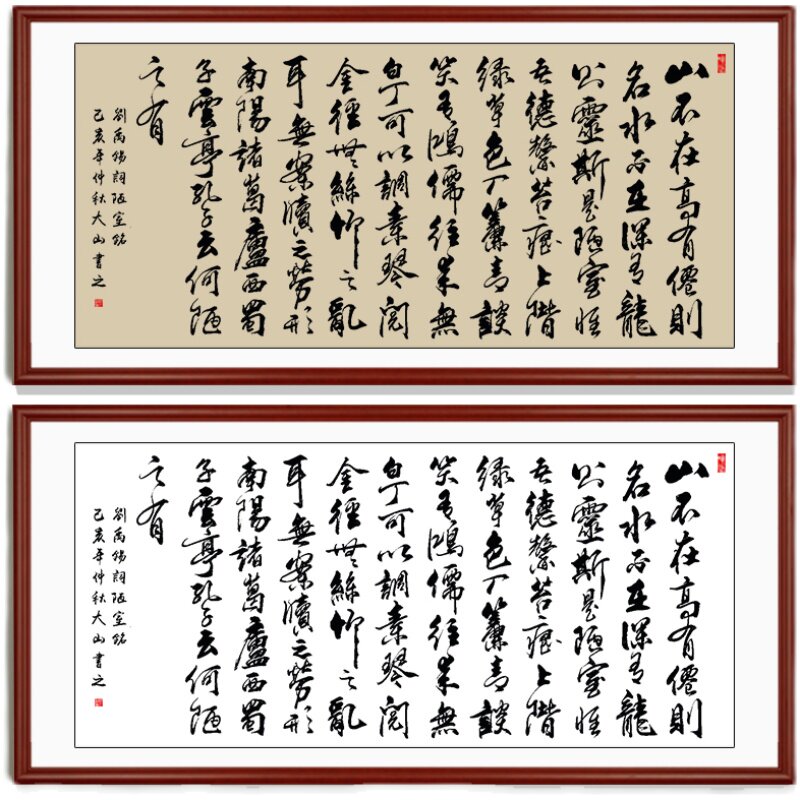 山不在高有僊則
名水不在深有龍
則靈斯是陋室惟
吾德馨苔痕上階
綠草色入簾青談
笑有鴻儒往來無
白丁可以調素琴閱
金徑無絲竹之亂
耳無案牘之勞形
南陽諸葛廬西蜀
子雲亭孔子云何陋
之有
劉禹錫詞陋室銘
己亥年仲秋大山書之
山不在高有僊則
名水不在深有龍
則靈斯是陋室惟
吾德馨苔痕上階
綠草色入簾青談
笑有鴻儒往來無
白丁可以調素琴閱
金徑無絲竹之亂
耳無案牘之勞形
南陽諸葛廬西蜀
子雲亭孔子云何陋
之有
劉禹錫詞陋室銘
己亥年仲秋大山書之